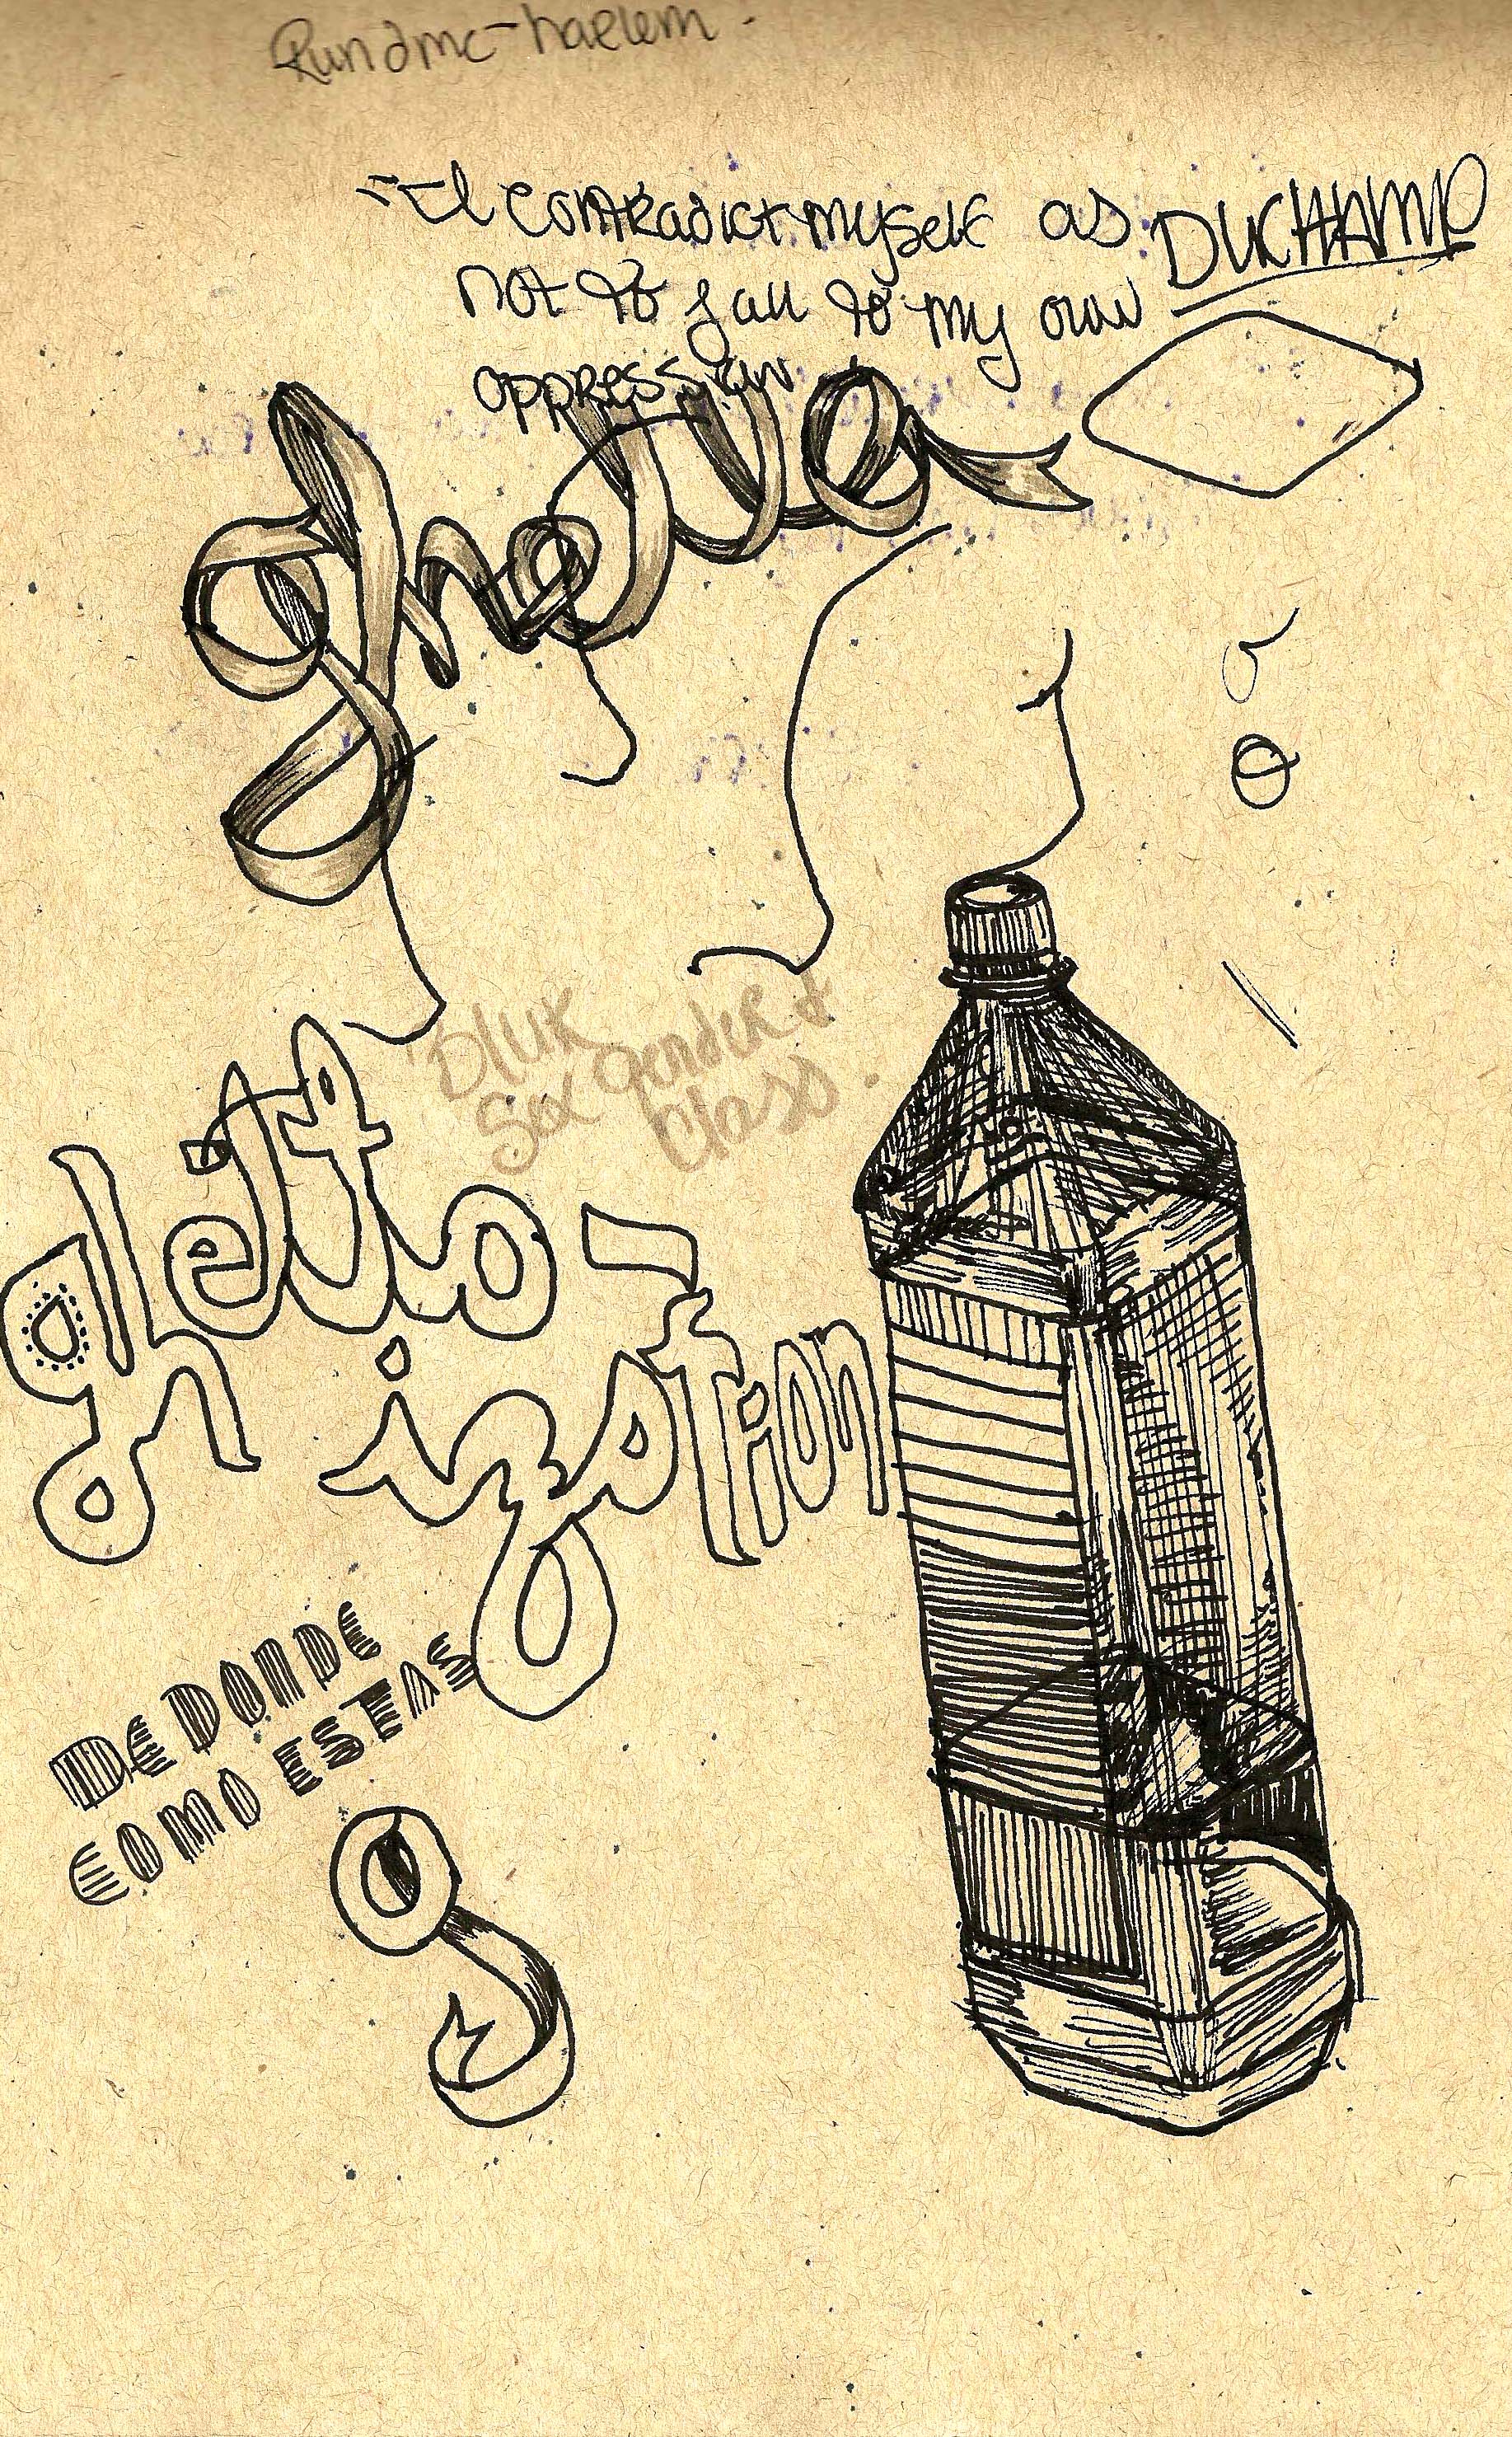 Rundmc-haelem.
--I contradict myself as DUCHAMP
not to fall to my own
oppression
ghetto
Sex gender &
Class.
ghetto-
ization
DE DONDE
COMO ESTAS